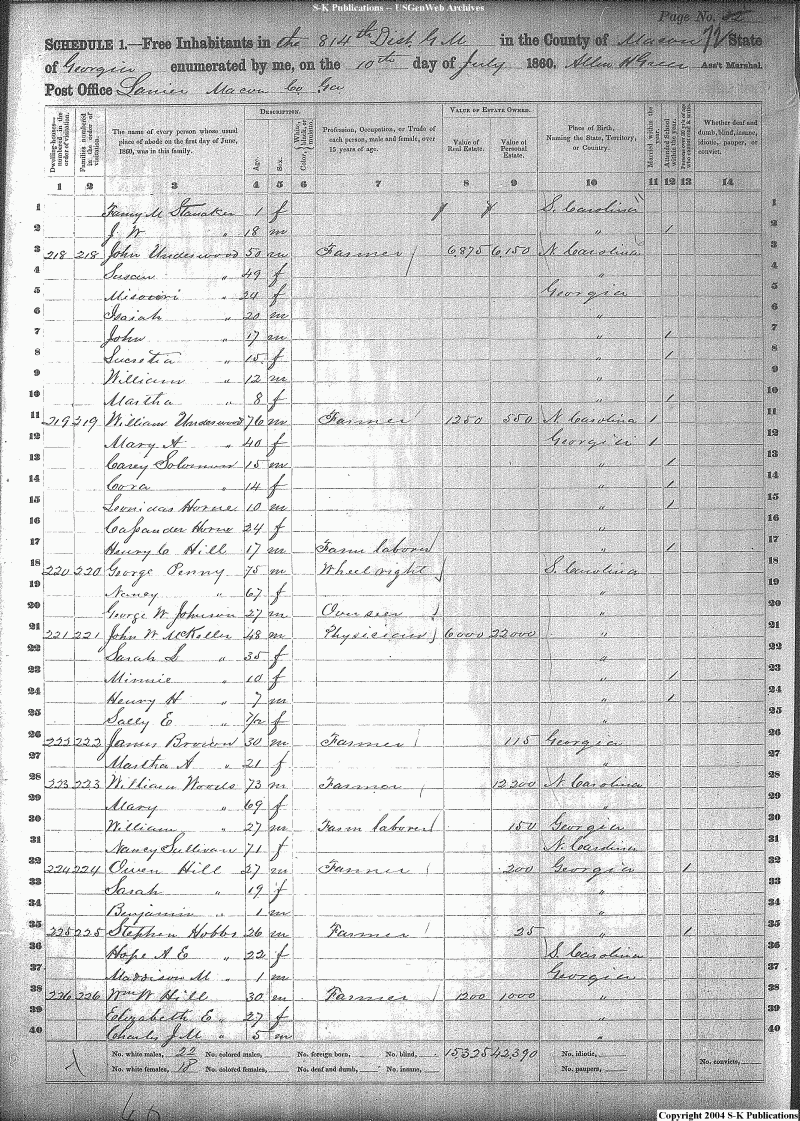 S-K Publications -- USGenWeb Archives
Page No.
SCHEDULE 1.—Free Inhabitants in the 814th Dist. G M in the County of Macon State
of Georgia enumerated by me, on the 10th day of July 1860. Allen H Greer Ass't Marshal.
Post Office Lanier Macon Co Ga
Dwelling-houses—numbered in the order of visitation.
Families numbered in the order of visitation.
The name of every person whose usual place of abode on the first day of June, 1860, was in this family.
DESCRIPTION.
Age.
Sex.
Color, White, black, or mulatto.
Profession, Occupation, or Trade of each person, male and female, over 15 years of age.
VALUE OF ESTATE OWNED.
Value of Real Estate.
Value of Personal Estate.
Place of Birth, Naming the State, Territory, or Country.
Married within the year.
Attended School within the year.
Whether deaf and dumb, blind, insane, idiotic, pauper, or convict.
1 2 3 4 5 6 7 8 9 10 11 12 13 14
1 1 f S. Carolina 1
2 J. W " 18 m " 1 2
3 218 218 John Underwood 50 m Farmer 6875 6,150 N. Carolina 3
4 Susan " 49 f " 4
5 Missouri " 24 f Georgia 5
6 Isaiah " 20 m " 6
7 John " 17 m " 1 7
8 Lucretia " 15 f " 1 8
9 William " 12 m " 9
10 Martha " 8 f " 1 10
11 219 219 William Underwood 76 m Farmer 1250 550 N. Carolina 1 11
12 Mary A " 40 f Georgia 1 12
13 Carey Solomon 15 m " 1 13
14 Cora " 14 f " 1 14
15 Leonidas Horne 10 m " 1 15
16 Cassander Horne 24 f " 16
17 Henry C Hill 17 m Farm laborer " 1 17
18 220 220 George Penny 75 m Wheelright S. Carolina 18
19 Nancy " 67 f " 19
20 George W Johnson 27 m Overseer " 20
21 221 221 John W McKellar 48 m Physician 6000 22000 " 21
22 Sarah L " 35 f " 22
23 Minnie " 10 f " 1 23
24 Henry H " 7 m " 1 24
25 Sally E " f " 25
26 222 222 James Brown 30 m Farmer 115 Georgia 26
27 Martha A " 21 f " 27
28 223 223 William Woods 73 m Farmer 12200 N. Carolina 28
29 Mary " 69 f " 29
30 William " 27 m Farm laborer 150 Georgia 30
31 Nancy Sullivan 71 f N. Carolina 31
32 224 224 Owen Hill 27 m Farmer 200 Georgia 1 32
33 Sarah " 19 f " 33
34 Benjamin " 1 m " 34
35 225 225 Stephen Hobbs 26 m Farmer 25 " 1 35
36 Hope A E " 22 f S. Carolina 36
37 Maddison M " 1 m Georgia 37
38 226 226 Wm W Hill 30 m Farmer 1200 1000 " 38
39 Elizabeth E " 27 f " 39
40 Charles J. M " 5 m " 40
No. white males, 22 No. colored males, No. foreign born, No. blind, 15,325 42,390 No. idiotic,
No. white females, 18 No. colored females, No. deaf and dumb, No. insane, No. paupers, No. convicts,
Copyright 2004 S-K Publications